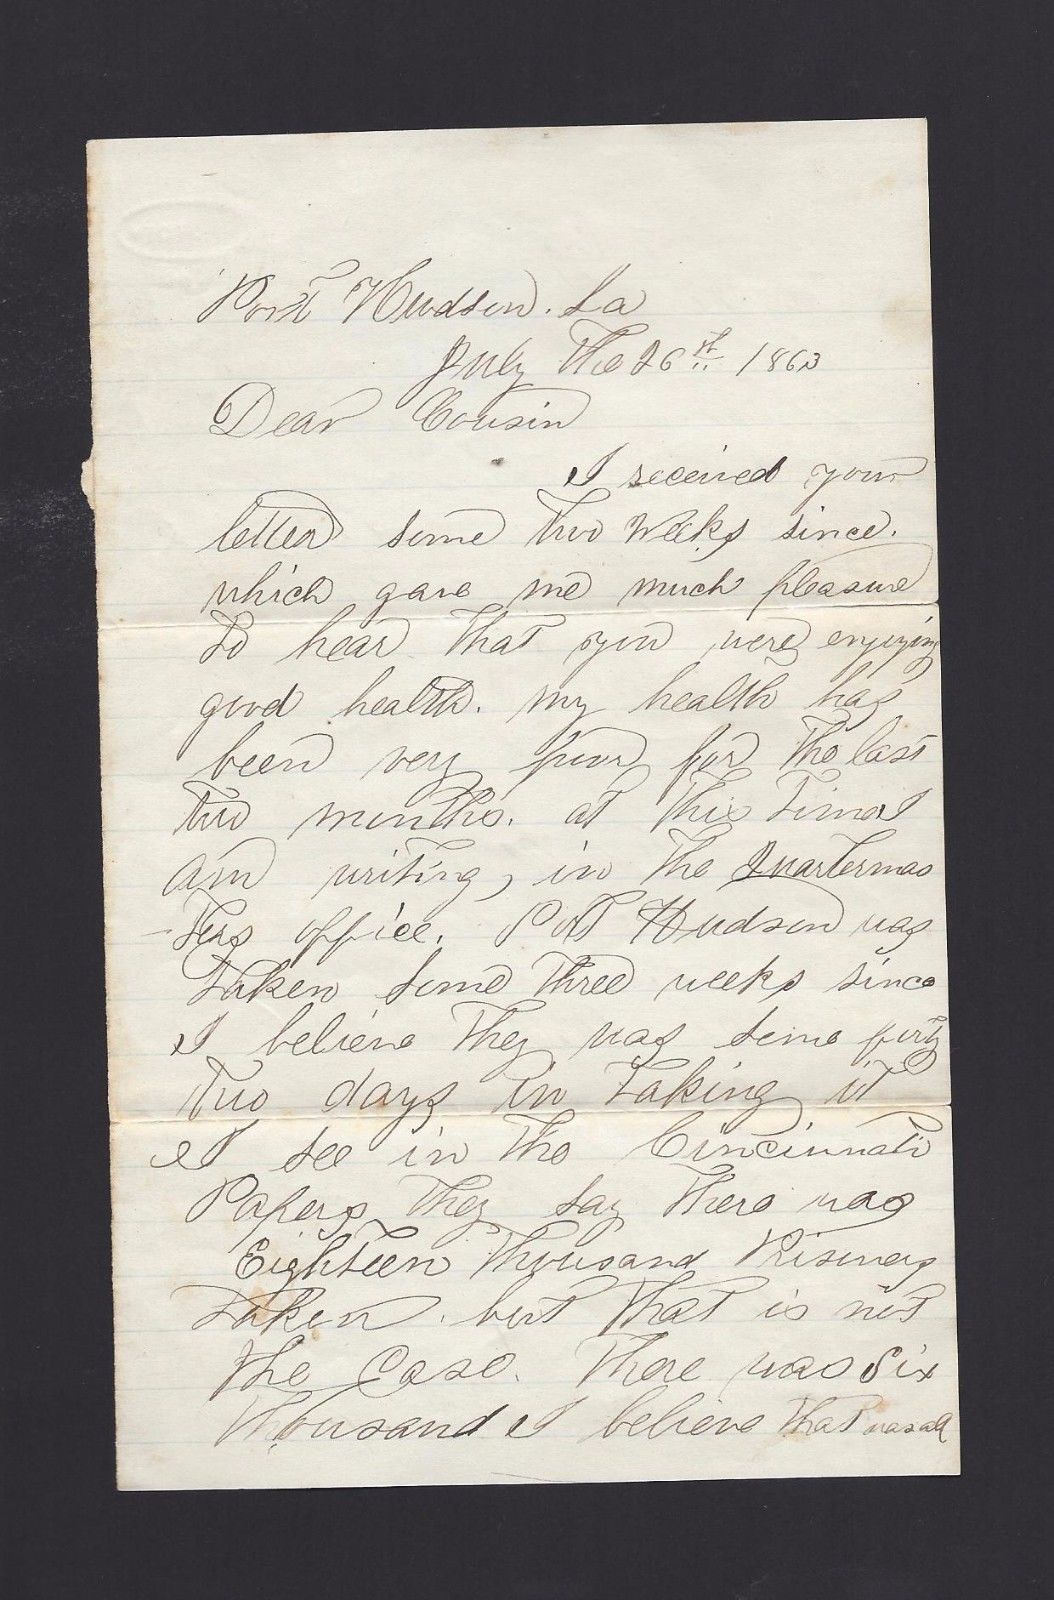 Port Hudson. La
July the 26st 1863
Dear Cousin
I received your
letter some two weeks since.
which gave me much pleasure
to hear that you were enjoying
good health. my health has
been very poor for the last
two months. at this time I
am writing, in the Quartermas
-ters office. Port Hudson was
taken some three weeks since
I believe they was some forty
two days in taking it
I see in the Cincinnati
Papers they say there was
Eighteen thousand Prisoners
taken. but that is not
the Case. there was Six
thousand I believe that was all